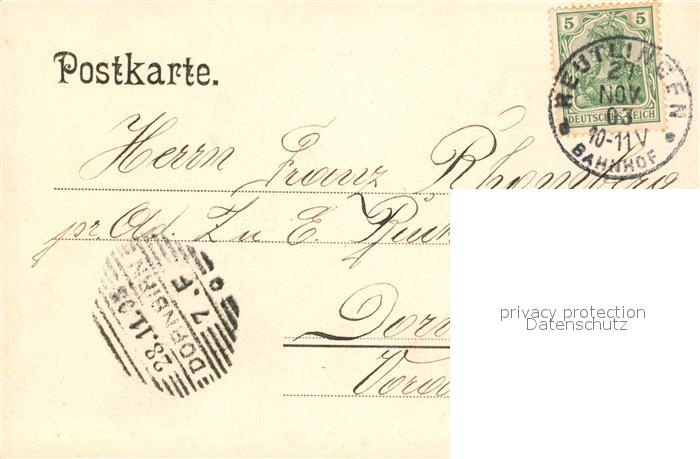 Postkarte.
5 5
DEUTSCHES REICH
REUTLINGEN
27
NOV
03
10-11V
BAHNHOF
Herrn Franz Rhomberg
pr. Ad. Zu E.
Dor
Vora
DORNBIRN
28.11.03
7.F
privacy protection
Datenschutz